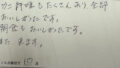 カニ料理もたくさんあり、全部
おいしかったです。
朝食もおいしかったです。
また来ます。